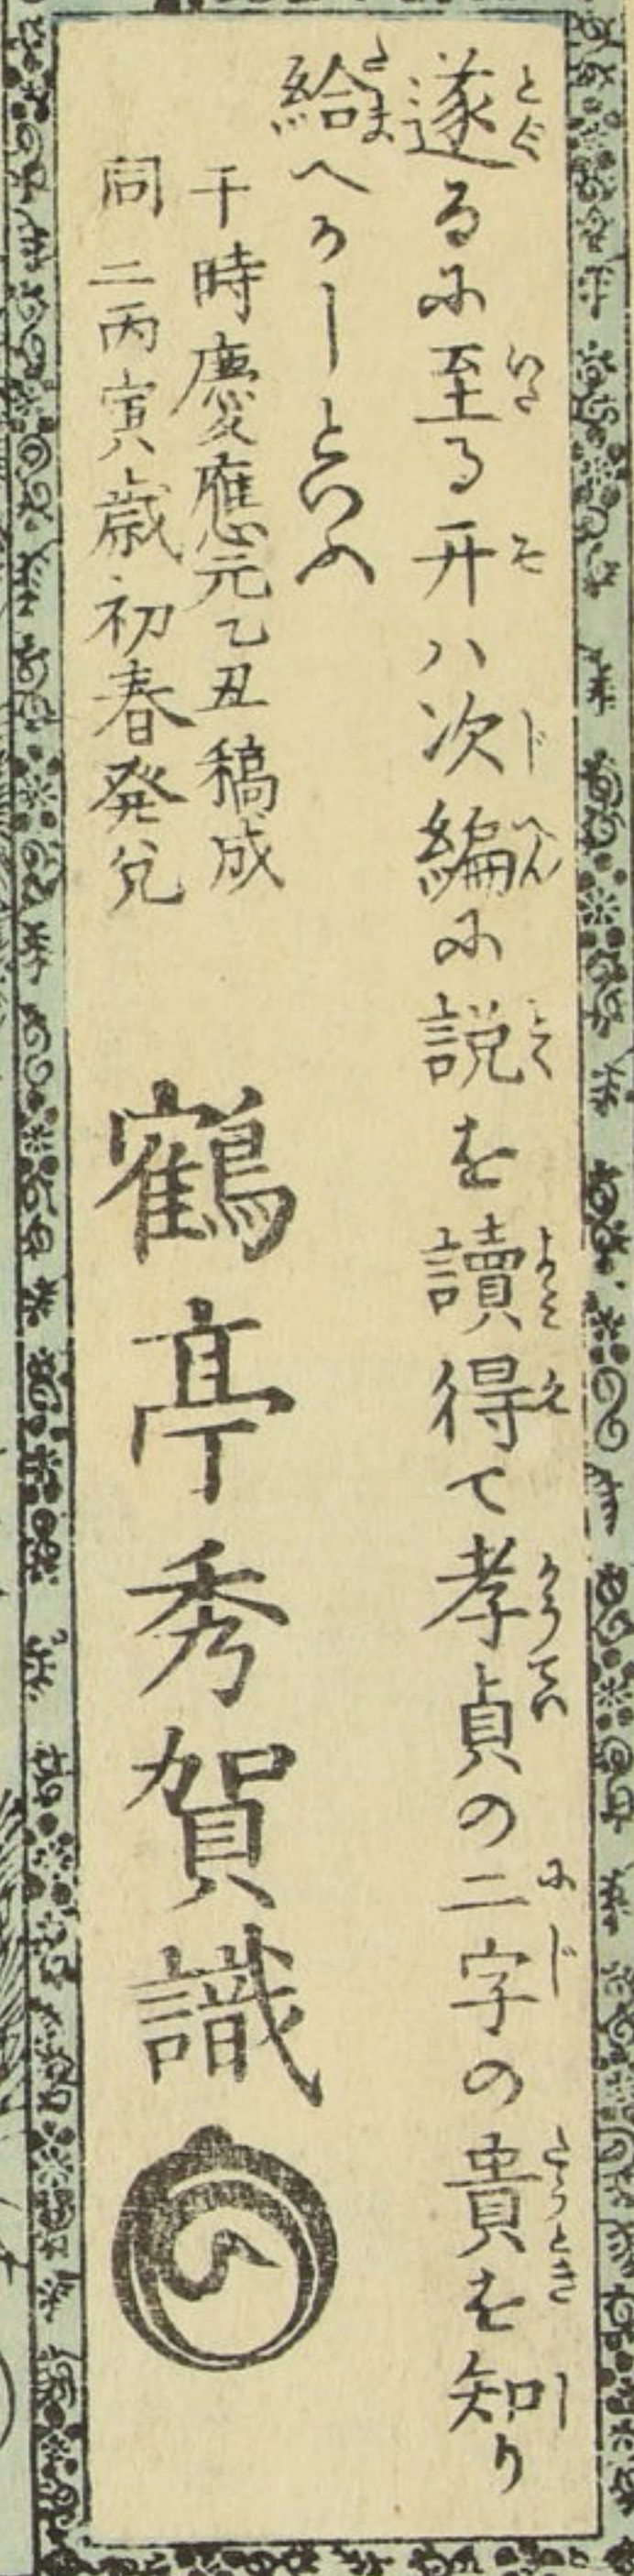 遂るに至る开ハ次編に説を讀得て孝貞の二字の貴を知り
給へかしといふ
于時慶應元乙丑稿成
同二丙寅歳初春発兌
鶴亭秀賀識